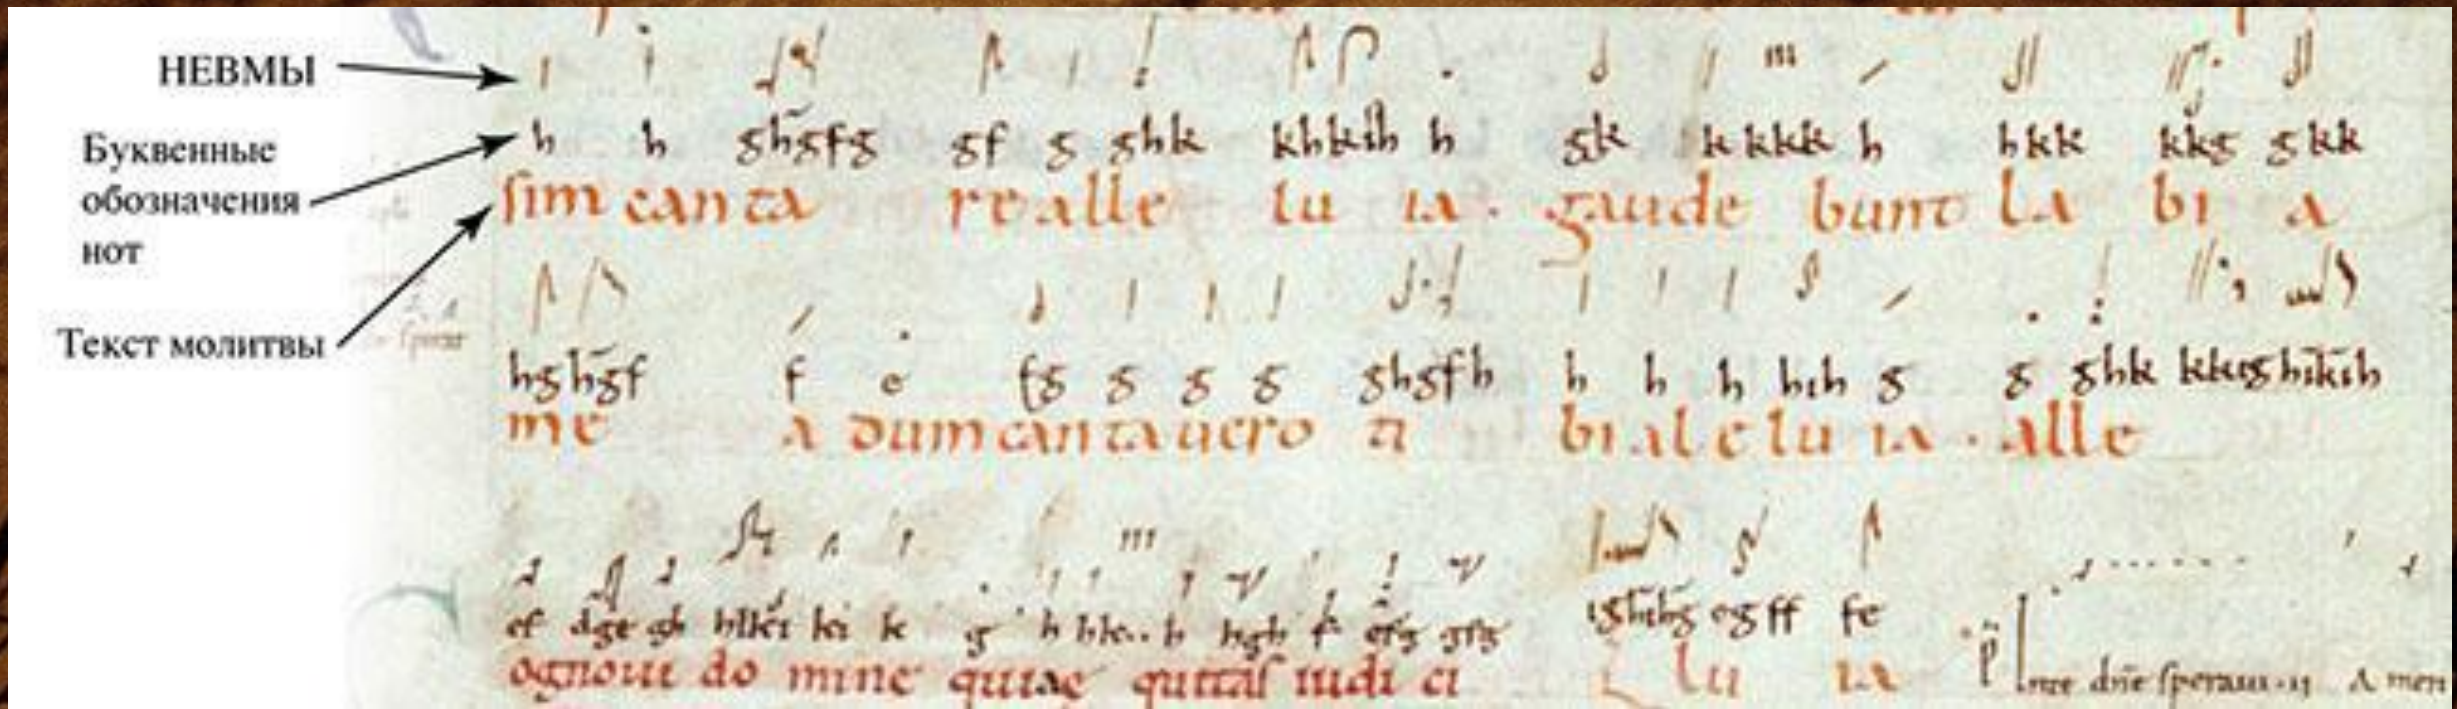 НЕВМЫ
Буквенные
обозначения
нот
Текст молитвы
h h ghgfg gf g ghk khkih h gk k kkk h hkk kkg g kk
sim can ta re alle lu ia . gaude bunt la bi a
hg hgf f e fg g g g ghgfh h h h hih g g ghk
me a dum can ta uero ti bi al e lu ia . alle
ef dge gh ki k g h h hgh fe
ognoui do mine quiae quitas iudi ci lu ia
te dne speraui A men